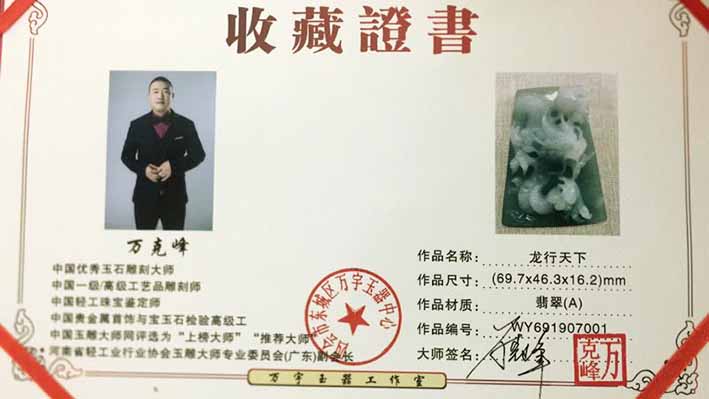 收藏證書
万克峰
中国优秀玉石雕刻大师
中国一级/高级工艺品雕刻师
中国轻工珠宝鉴定师
中国贵金属首饰与宝玉石检验高级工
中国玉雕大师网评选为“上榜大师”“推荐大师”
河南省轻工业行业协会玉雕大师专业委员会(广东)副会长
四会市东城区万宇玉器中心
作品名称: 龙行天下
作品尺寸: (69.7x46.3x16.2)mm
作品材质: 翡翠(A)
作品编号: WY691907001
大师签名: 万克峰
万克峰
万宇玉器工作室